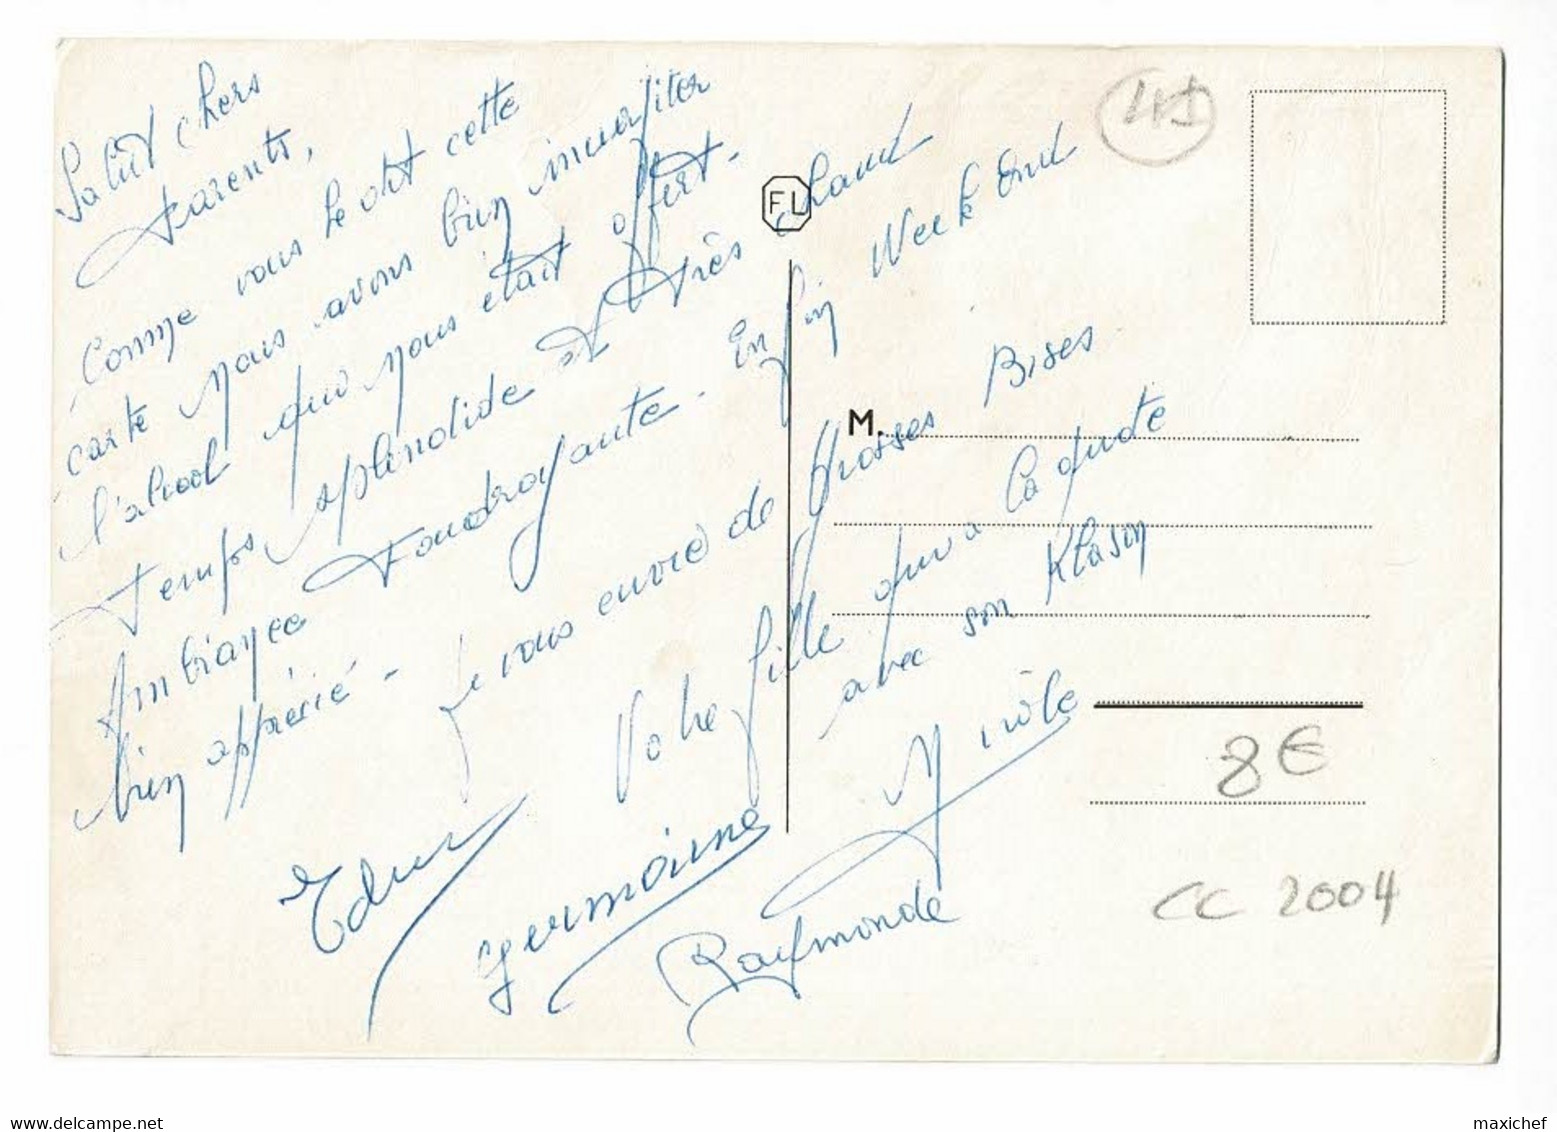 Salut chers
Parents,
Comme vous le dit cette
carte nous avons bien
l'alcool qui nous était offert.
Temps splendide et très chaud
Ambiance Foudroyante. Enfin Week End
bien apprécié - Je vous envoie de Grosses Bises
Votre fille qui a
avec son Klason
Nicole
germaine
Raymonde
FL
M.
41
8€
CC 2004
maxichef